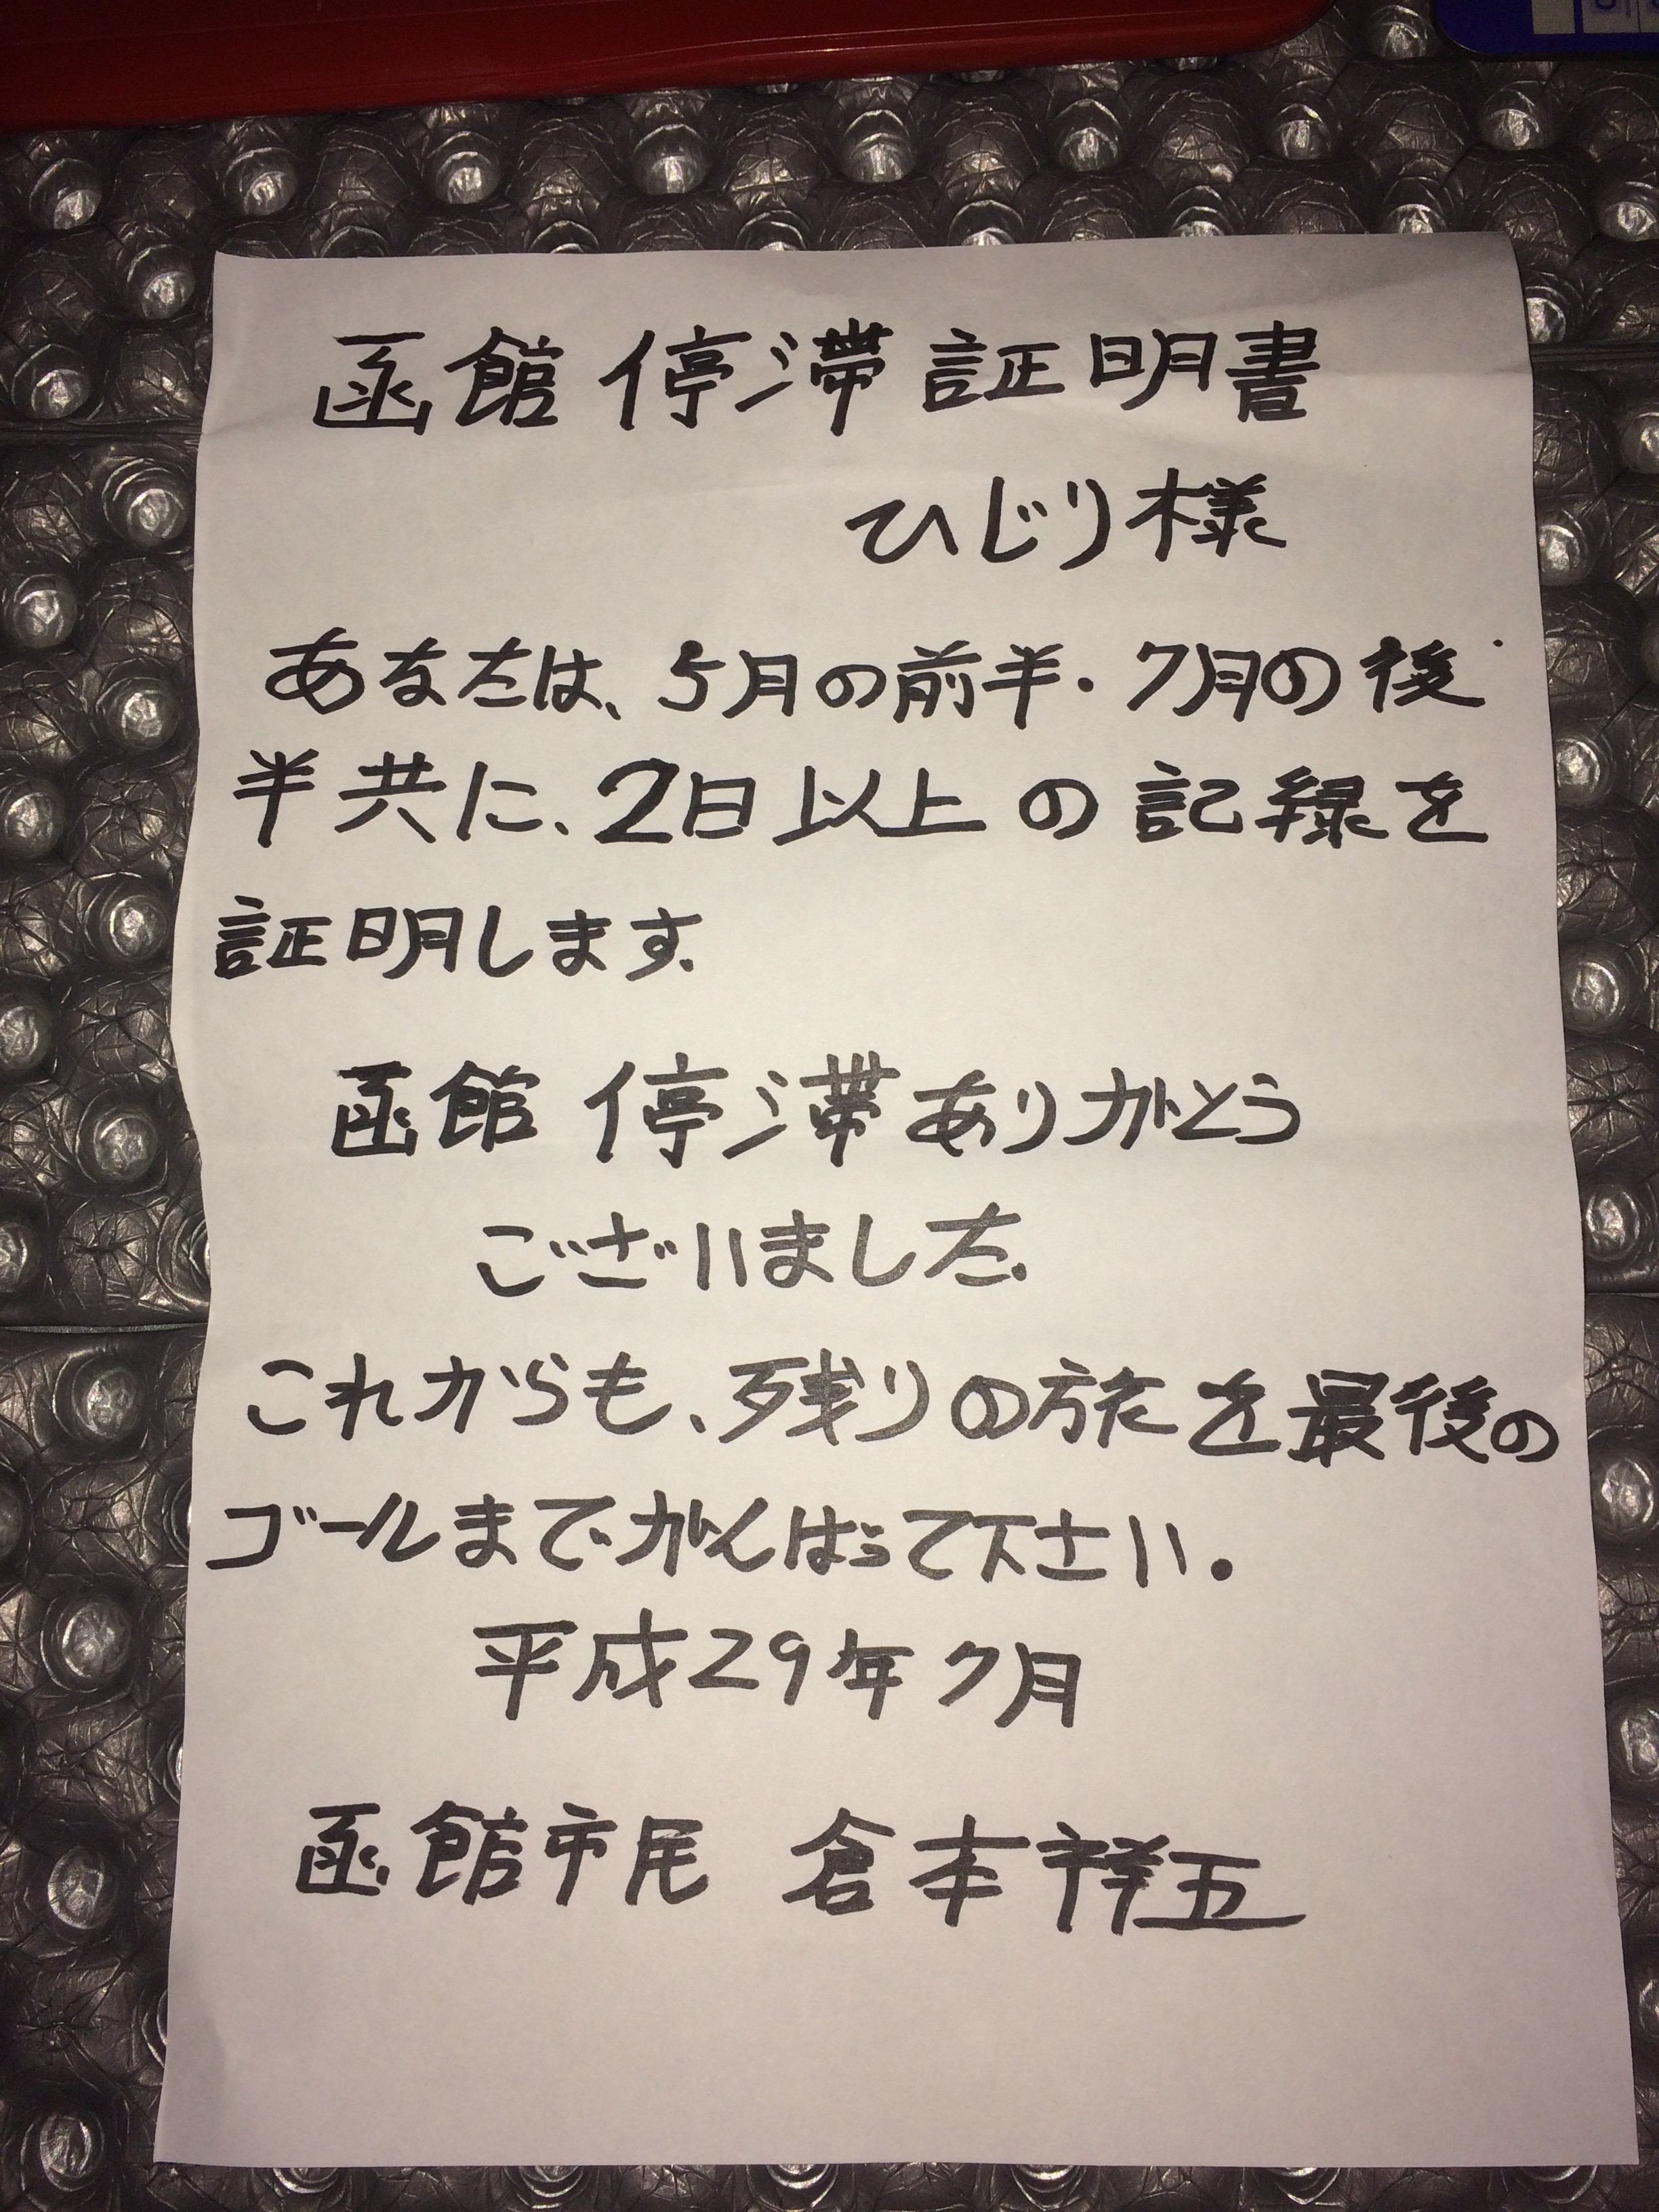 函館停滞証明書
ひじり様
あなたは、5月の前半・7月の後
半共に、2日以上の記録を
証明します.
函館停滞ありがとう
ございました.
これからも、残りの旅を最後の
ゴールまでがんばって下さい.
平成29年7月
函館市尾 倉本祥五